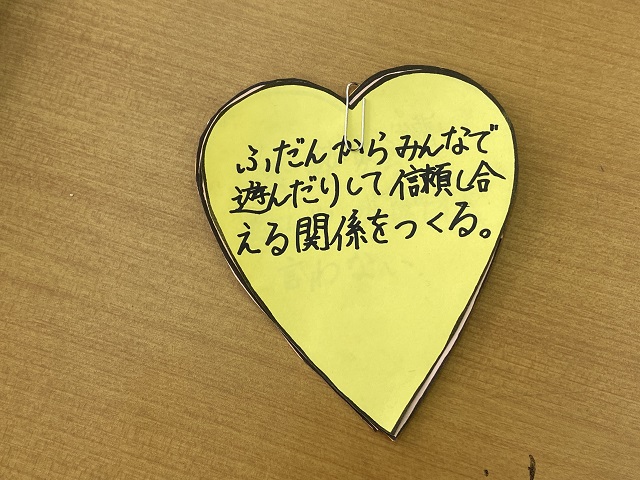 ふだんからみんなで
遊んだりして信頼し合
える関係をつくる。